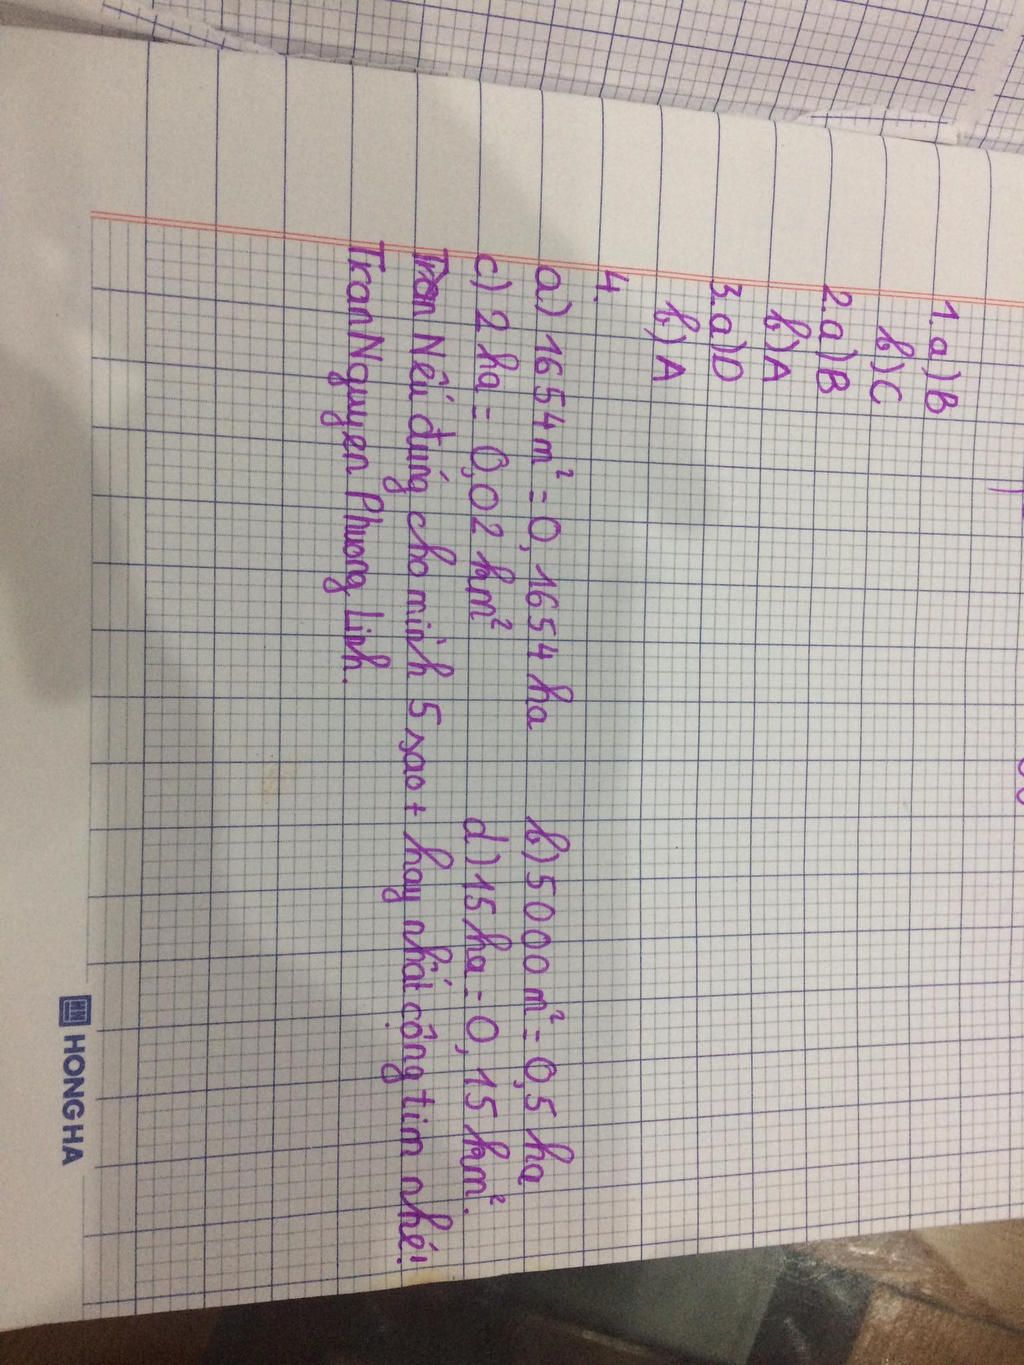 1.a) B
b) C
2.a) B
b) A
3.a) D
b) A
4.
a) 1654m² = 0,1654 ha b) 5000 m² = 0,5 ha
c) 2 ha = 0,02 km² d) 15 ha = 0,15 km².
Nếu đúng cho mình 5 sao + hay nhất cộng tim nhé!
Tran Nguyen Phuong Linh.
HONG HA